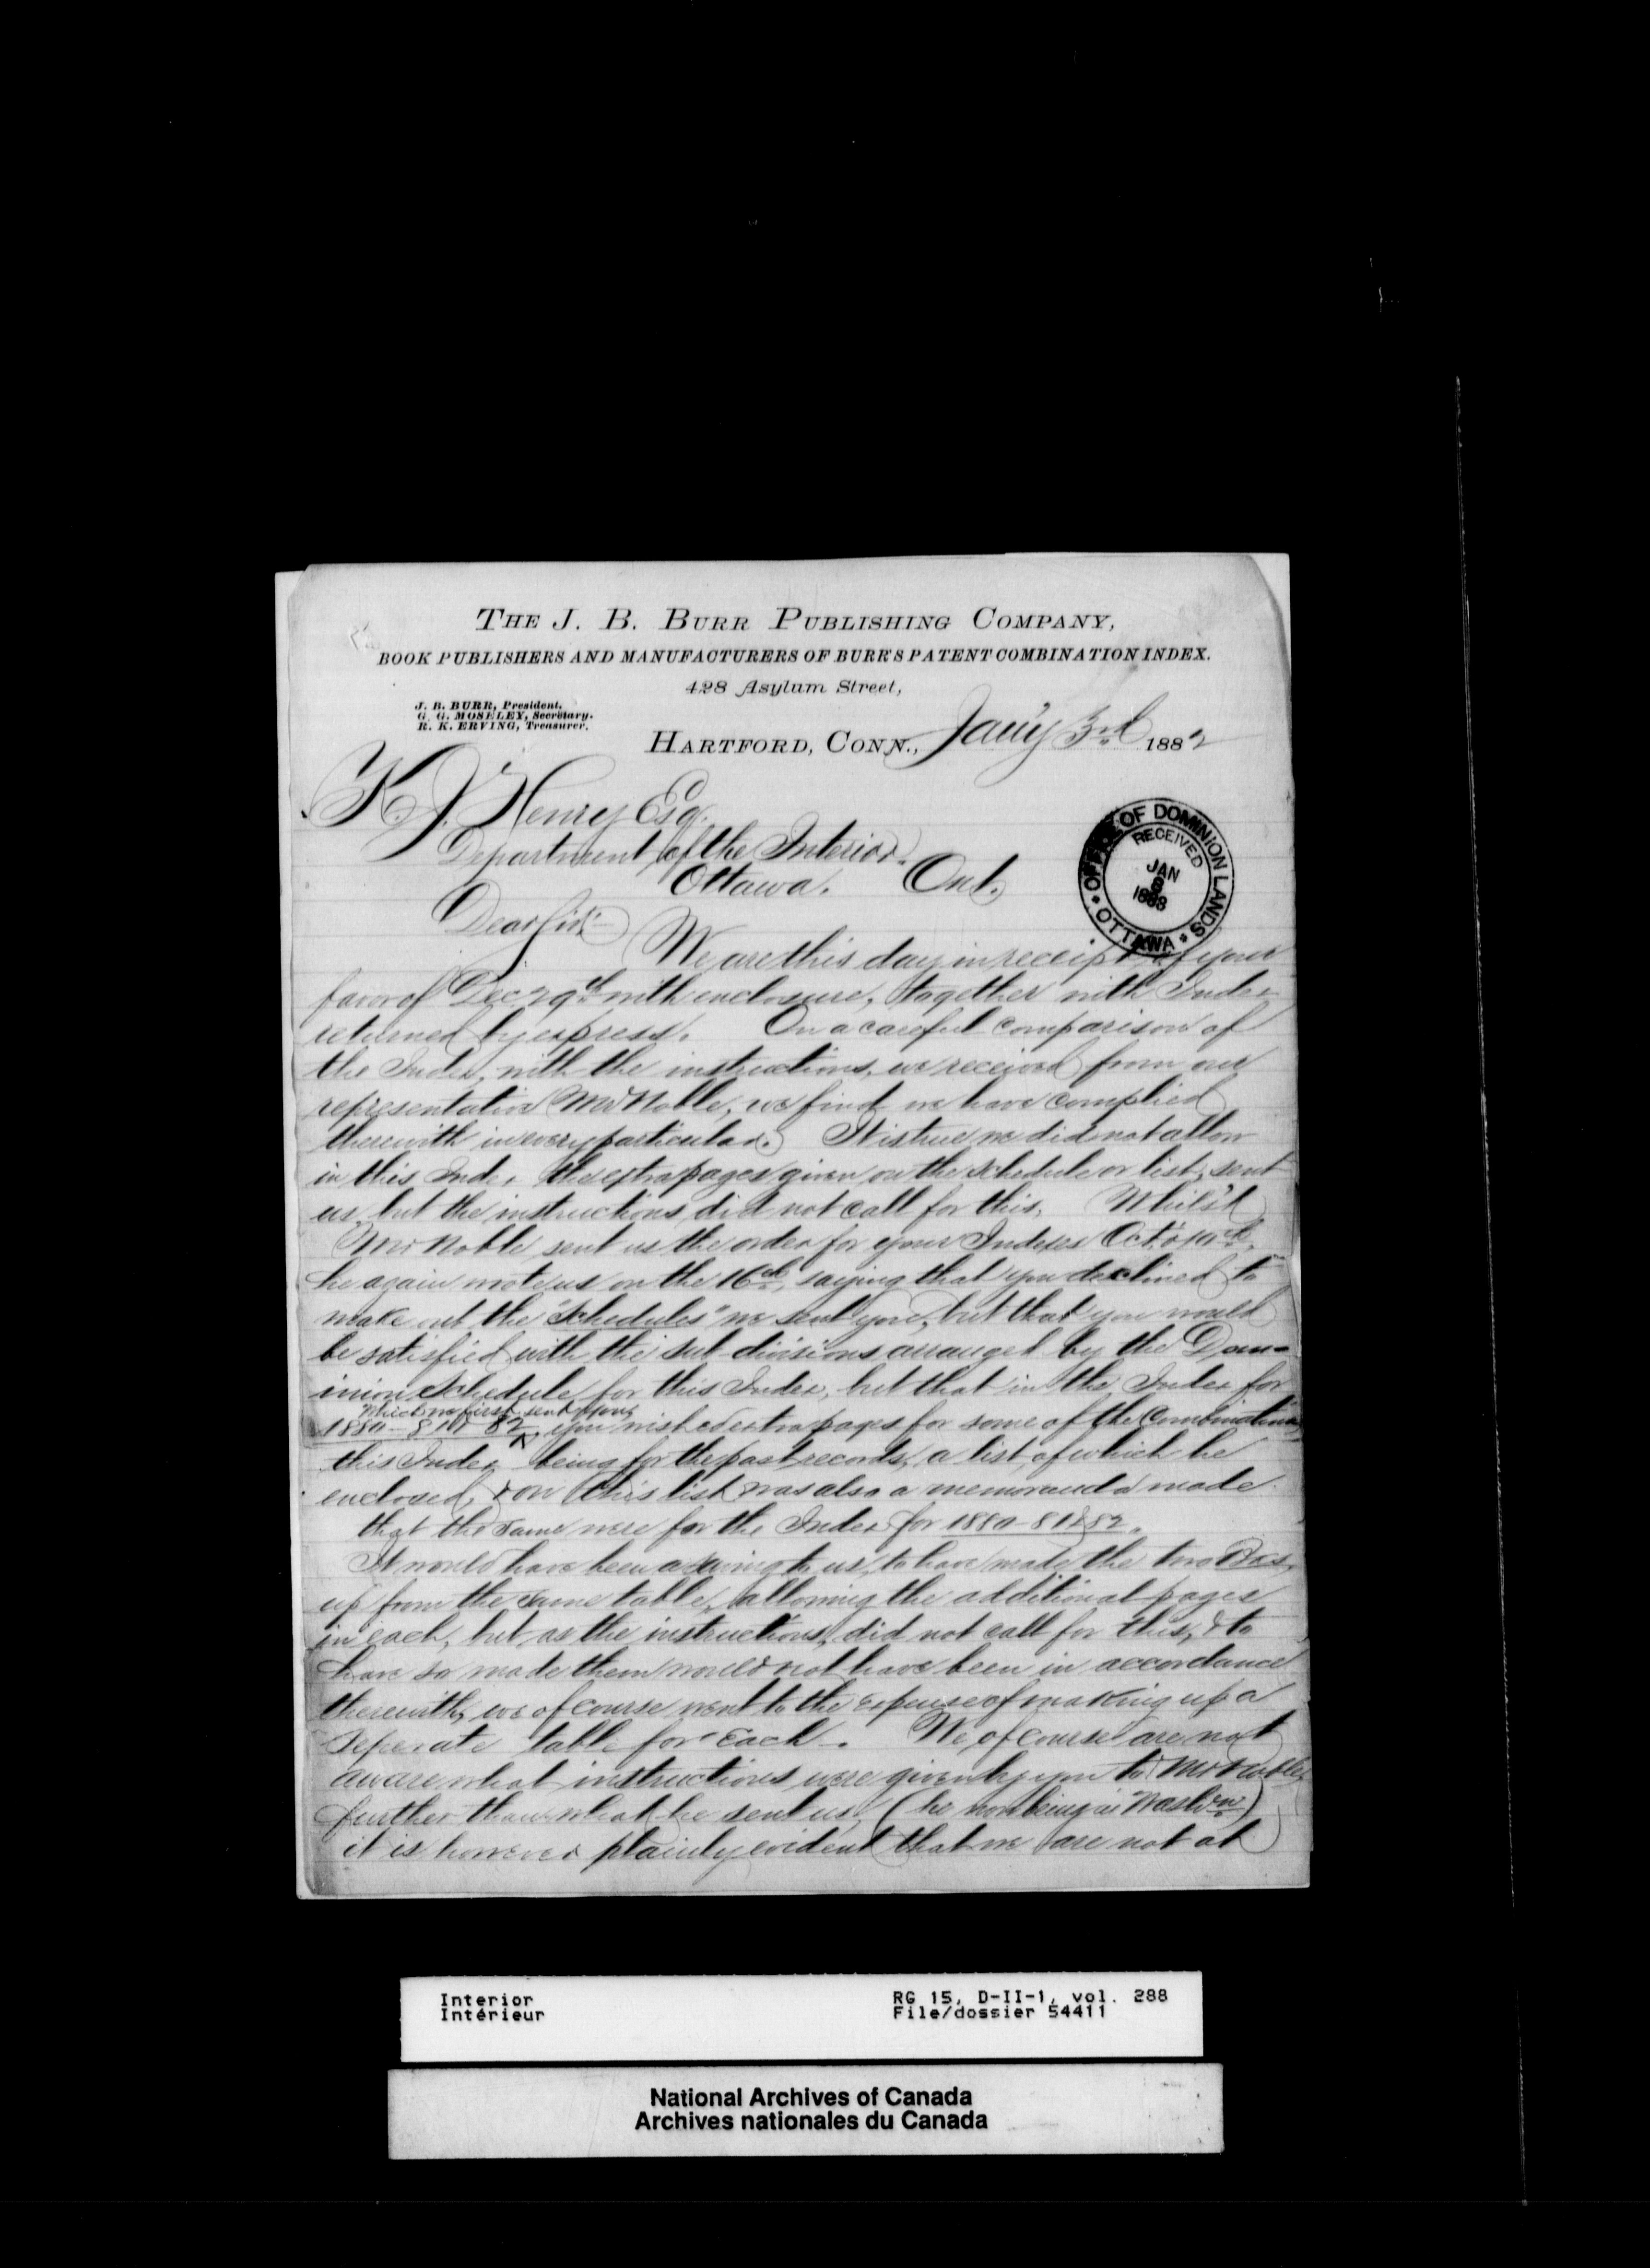 THE J. B. BURR PUBLISHING COMPANY,
BOOK PUBLISHERS AND MANUFACTURERS OF BURR'S PATENT COMBINATION INDEX.
428 Asylum Street,
J. B. BURR, President.
G. G. MOSELEY, Secretary.
R. K. ERVING, Treasurer.
HARTFORD, CONN., Jan'y 3rd 1882
K. J. Henry Esq.
Department of the Interior.
Ottawa. Ont.
OFFICE OF DOMINION LANDS
RECEIVED
JAN
1883
OTTAWA
Dear Sir:
We are this day in receipt of your
favor of Dec 29th with enclosure, together with Index
returned by express. On a careful comparison of
the Index, with the instructions, we received from our
representative Mr Noble, we find we have complied
therewith in every particular. It is true we did not allow
in this Index the extra pages given on the schedule or list, sent
us, but the instructions did not call for this. Whilst
Mr Noble sent us the order for your Indexes Oct. 10th,
he again wrote us on the 16th, saying that you declined to
make out the "schedules" we sent you, but that you would
be satisfied with the sub-divisions arranged by the Dom-
inion Schedule for this Index, but that in the Index for
which we first sent you
1880-81 & 82, you wished extra pages for some of the Combinations
this Index being for the past records, a list of which he
enclosed, & on this list was also a memoranda made
that the same were for the Index for 1880-81 & 82.
It would have been a saving to us, to have made the two
up from the same table, allowing the additional pages
in each, but as the instructions, did not call for this, & to
have so made them would not have been in accordance
therewith, we of course went to the expense of making up a
Seperate table for each. We of course are not
aware what instructions were given by you to Mr Noble,
further than what he sent us, (he now being in Washn)
it is however plainly evident that we are not at
Interior
Intérieur
RG 15, D-II-1, vol. 288
File/dossier 54411
National Archives of Canada
Archives nationales du Canada